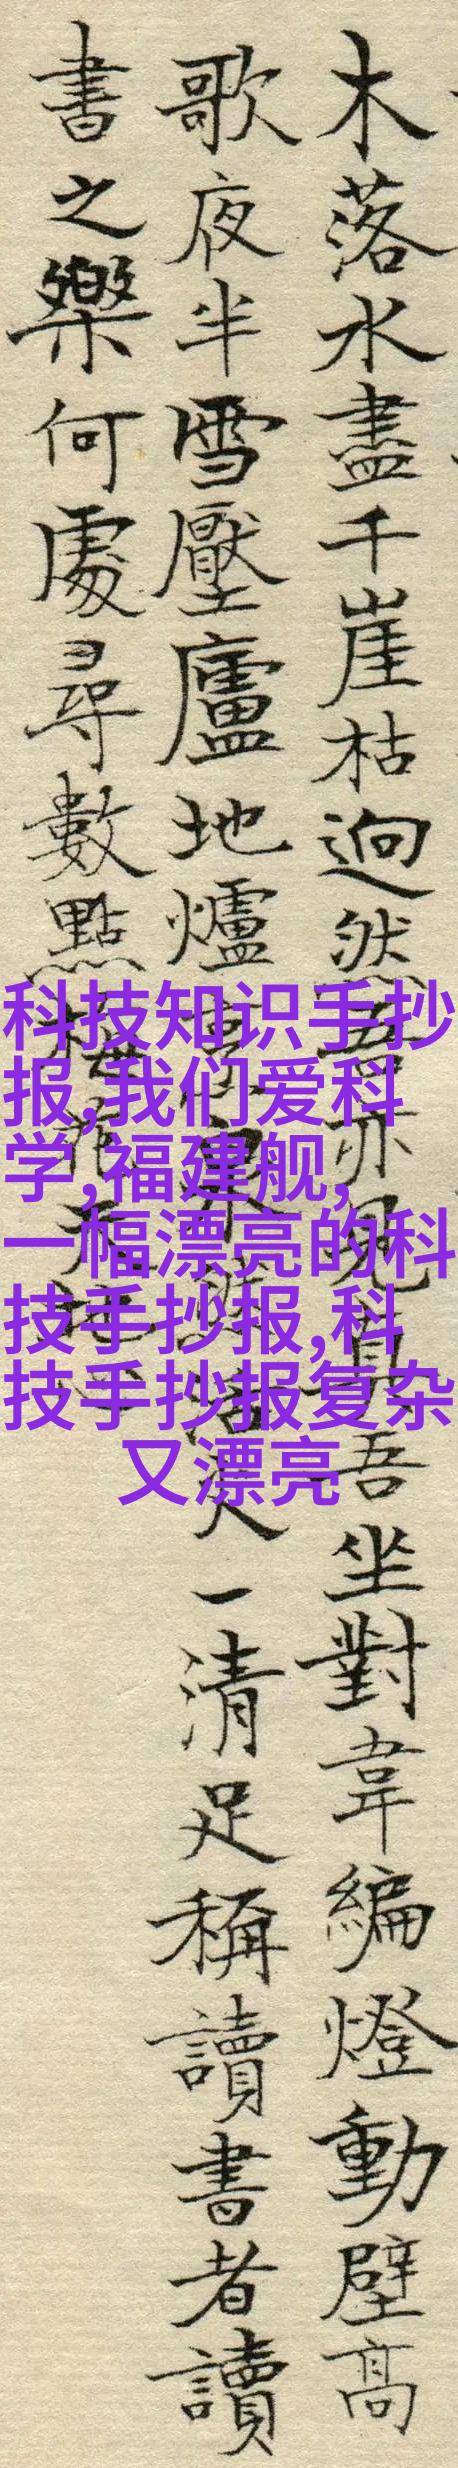 木落水盡千崖枯迥然吾亦見真吾坐對韋編燈動壁高
歌夜半雪壓廬地爐烹泉然活火一清足稱讀書者讀
書之樂何處尋數點梅花天地心
科技知识手抄
报,我们爱科
学,福建舰,
一幅漂亮的科
技手抄报,科
技手抄报复杂
又漂亮